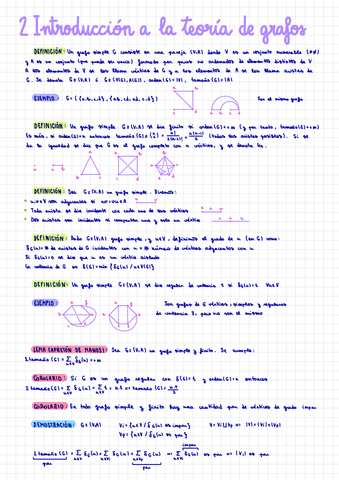 2 Introducción a la teoría de grafos
DEFINICIÓN: Un grafo simple G consiste en una pareja (V,A) donde V es un conjunto numerable (≠∅)
y A es un conjunto (que puede ser vacío) formado por pares no ordenados de elementos distintos de V
A los elementos de V se les llama vértices de G y a los elementos de A se les llama aristas de
G. Se denota G=(V,A) ó G=(V(G),A(G)), orden(G)=|V|, tamaño(G)=|A|
EJEMPLO G=({a,b,c,d}, {ab,cd,ad,c,d})
Son el mismo grafo
DEFINICIÓN: Un grafo simple G=(V,A) se dice finito si orden(G)<∞ (y por tanto, tamaño(G)<∞)
Es más, n=orden(G) entonces tamaño(G) ≤ (todas sus aristas posibles). Si se
da la igualdad se dice que G es el grafo completo con n vértices, y se denota
DEFINICIÓN: Sea G=(V,A) un grafo simple. Diremos:
u,v∈V son adyacentes si uv=vu∈A
Toda arista se dice incidente con cada uno de sus vértices
Dos aristas son incidentes si comparten uno y solo un vértice
DEFINICIÓN: Dado G=(V,A) grafo simple, y u∈V, definimos el grado de u (en G) como:
δG(u)=# de aristas de G incidentes con u = # número de vértices adyacentes con u
Si δG(u)=0 se dice que u es un vértice aislado
La valencia de G es δ(G)=min{δG(u)/u∈V(G)}
DEFINICIÓN: Un grafo simple G=(V,A) se dice regular de valencia r si δG(u)=r ∀u∈V
EJEMPLO
Son grafos de 6 vértices, simples y regulares
de valencia 3, pero no son el mismo
LEMA (APRETÓN DE MANOS): Sea G=(V,A) un grafo simple y finito. Se cumple:
2 tamaño(G) = Σ δG(u) < ∞
COROLARIO: Si G es un grafo regular con δ(G)=r y orden(G)=n entonces
2 tamaño(G) = Σ δG(u) = Σ r = n·r ⇒ tamaño(G) = n·r/2
COROLARIO: En todo grafo simple y finito hay una cantidad par de vértices de grado impar
DEMOSTRACIÓN G=(V,A) Vi={u∈V/δG(u) es impar} V=Vi∪Vp ⇒ |V|=|Vi|+|Vp|
Vp={u∈V/δG(u) es par}
2 tamaño(G) = Σ δG(u) = Σ δG(u) + Σ δG(u) ⇒ Σ δG(u) es par ⇒ |Vi| es par
par par